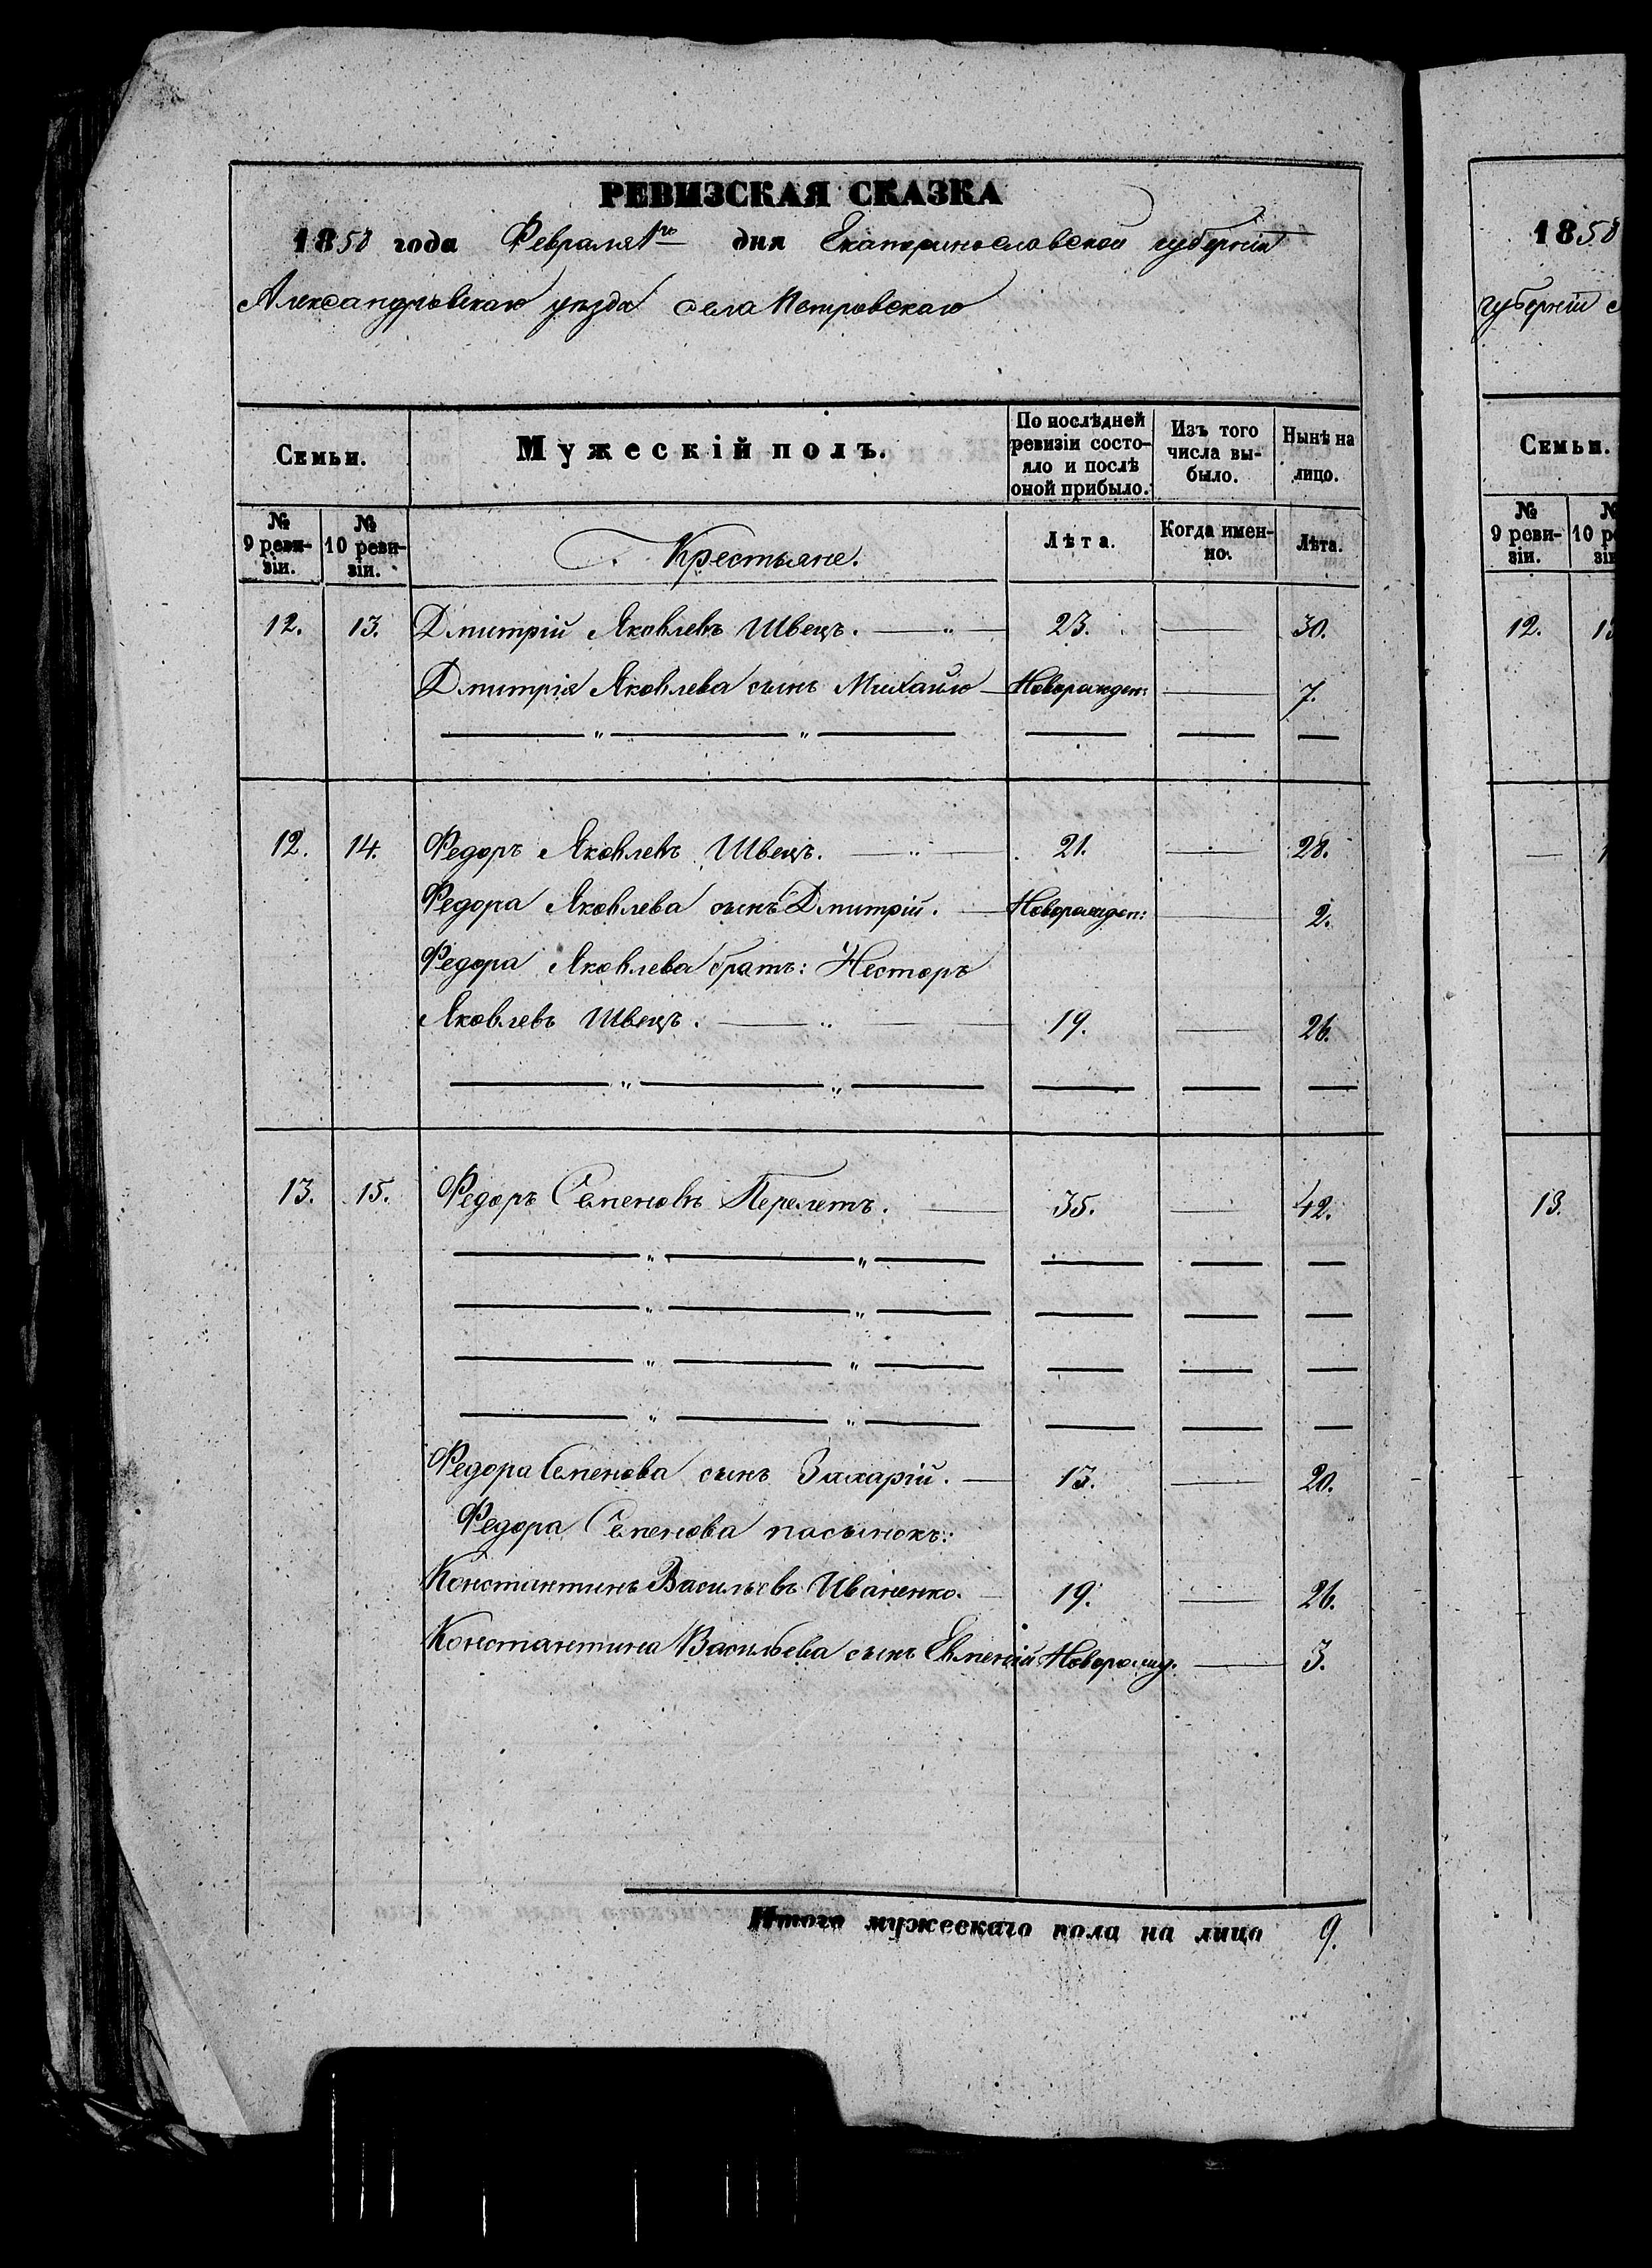 РЕВИЗСКАЯ СКАЗКА
1858 года Февраля 1го дня Екатеринославской губерніи
Александровскаго уѣзда села Петровскаго
Семьи.
Мужескій полъ.
По послѣдней ревизіи состо-
яло и послѣ
оной прибыло.
Изъ того
числа вы-
было.
Нынѣ на
лицо.
№
9 реви-
зіи.
№
10 реви-
зіи.
Крестьяне.
Лѣта.
Когда имен-
но.
Лѣта.
12. 13. Дмитрій Яковлевъ Швецъ. 23. 30.
Дмитрія Яковлева сынъ Михайло Новорожден: 7.
12. 14. Федоръ Яковлевъ Швецъ. 21. 28.
Федора Яковлева сынъ Дмитрій. Новорожден: 2.
Федора Яковлева братъ: Несторъ
Яковлевъ Швецъ. 19. 26.
13. 15. Федоръ Семеновъ Перелетъ. 35. 42.
Федора Семенова сынъ Захарій. 13. 20.
Федора Семенова пасынокъ:
Константинъ Васильевъ Иваненко. 19. 26.
Константина Васильева сынъ Евменій Новорожд. 3.
Итого мужескаго пола на лицо 9.
1858
губерніи
Семьи.
№
9 реви-
зіи.
10
12.
13.